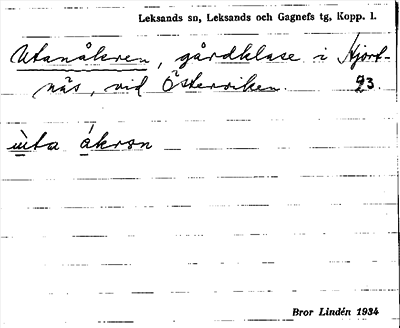 Leksands sn, Leksands och Gagnefs tg, Kopp. l.
Utanåkren, gårdklase i Hjort-
näs, vid Österviken. 93.
ùta ákron
Bror Lindén 1934